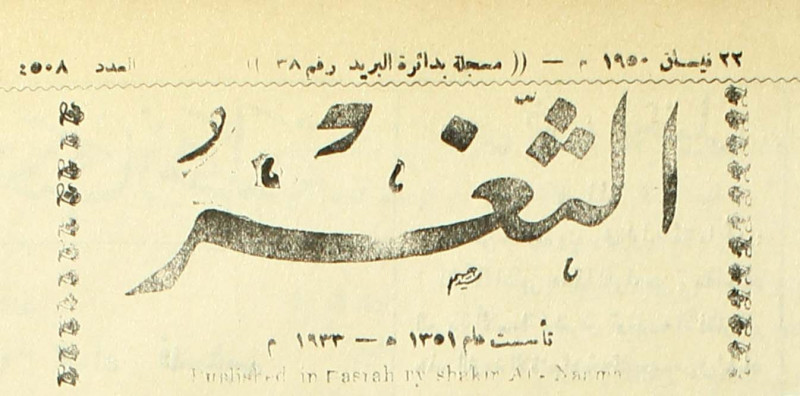 ٢٢ نيسان ١٩٥٠ م — (( مسجلة بدائرة البريد رقم ٣٨ )) العدد ٤٥٠٨
الثغر
تأسست عام ١٣٥١ ه — ١٩٣٣ م
Published in Basrah by shakir Al-Naama